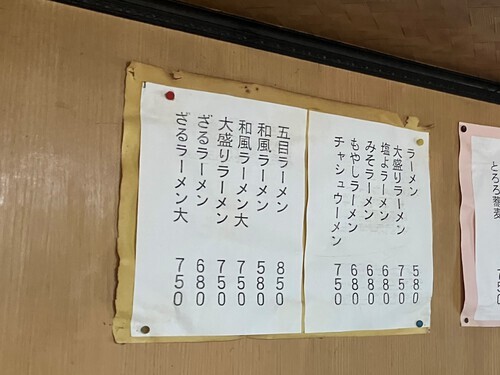 とろろ蕎麦 750
ラーメン 580
大盛りラーメン 750
塩よラーメン 680
みそラーメン 680
もやしラーメン 680
チャシュウーメン 750
五目ラーメン 850
和風ラーメン 580
和風ラーメン大 750
大盛りラーメン 750
ざるラーメン 680
ざるラーメン大 750